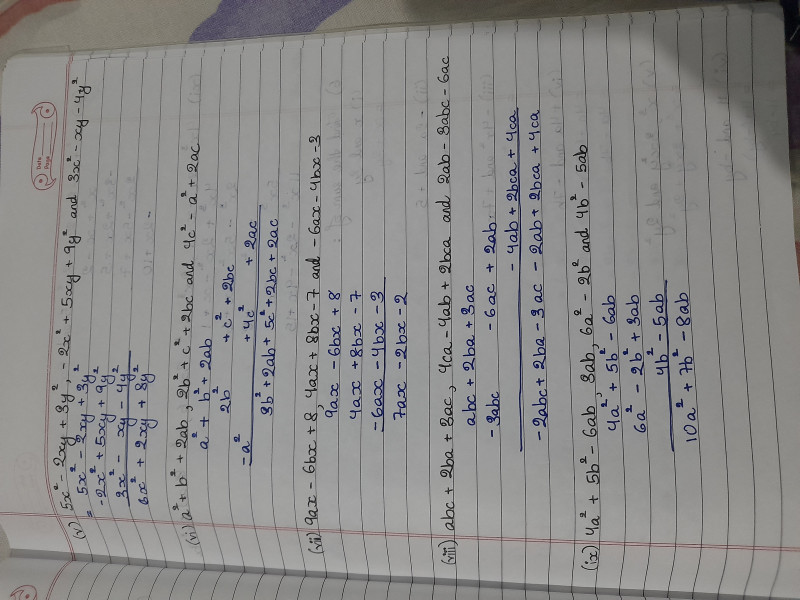 Date
Page
(v) 5x² - 2xy + 3y², - 2x² + 5xy + 9y² and 3x² - xy - 4y²
= 5x² - 2xy + 3y²
-2x² + 5xy + 9y²
3x² - xy - 4y²
6x² + 2xy + 8y²
(vi) a² + b² + 2ab, 2b² + c² + 2bc and 4c² - a² + 2ac
a² + b² + 2ab
2b² + c² + 2bc
-a² + 4c² + 2ac
3b² + 2ab + 5c² + 2bc + 2ac
(vii) 9ax - 6bx + 8, 4ax + 8bx - 7 and - 6ax - 4bx - 3
9ax - 6bx + 8
4ax + 8bx - 7
-6ax - 4bx - 3
7ax - 2bx - 2
(viii) abc + 2ba + 3ac, 4ca - 4ab + 2bca and 2ab - 3abc - 6ac
abc + 2ba + 3ac
- 3abc - 6ac + 2ab
- 4ab + 2bca + 4ca
- 2abc + 2ba - 3ac - 2ab + 2bca + 4ca
(ix) 4a² + 5b² - 6ab, 3ab, 6a² - 2b² and 4b² - 5ab
4a² + 5b² - 6ab
6a² - 2b² + 3ab
4b² - 5ab
10a² + 7b² - 8ab